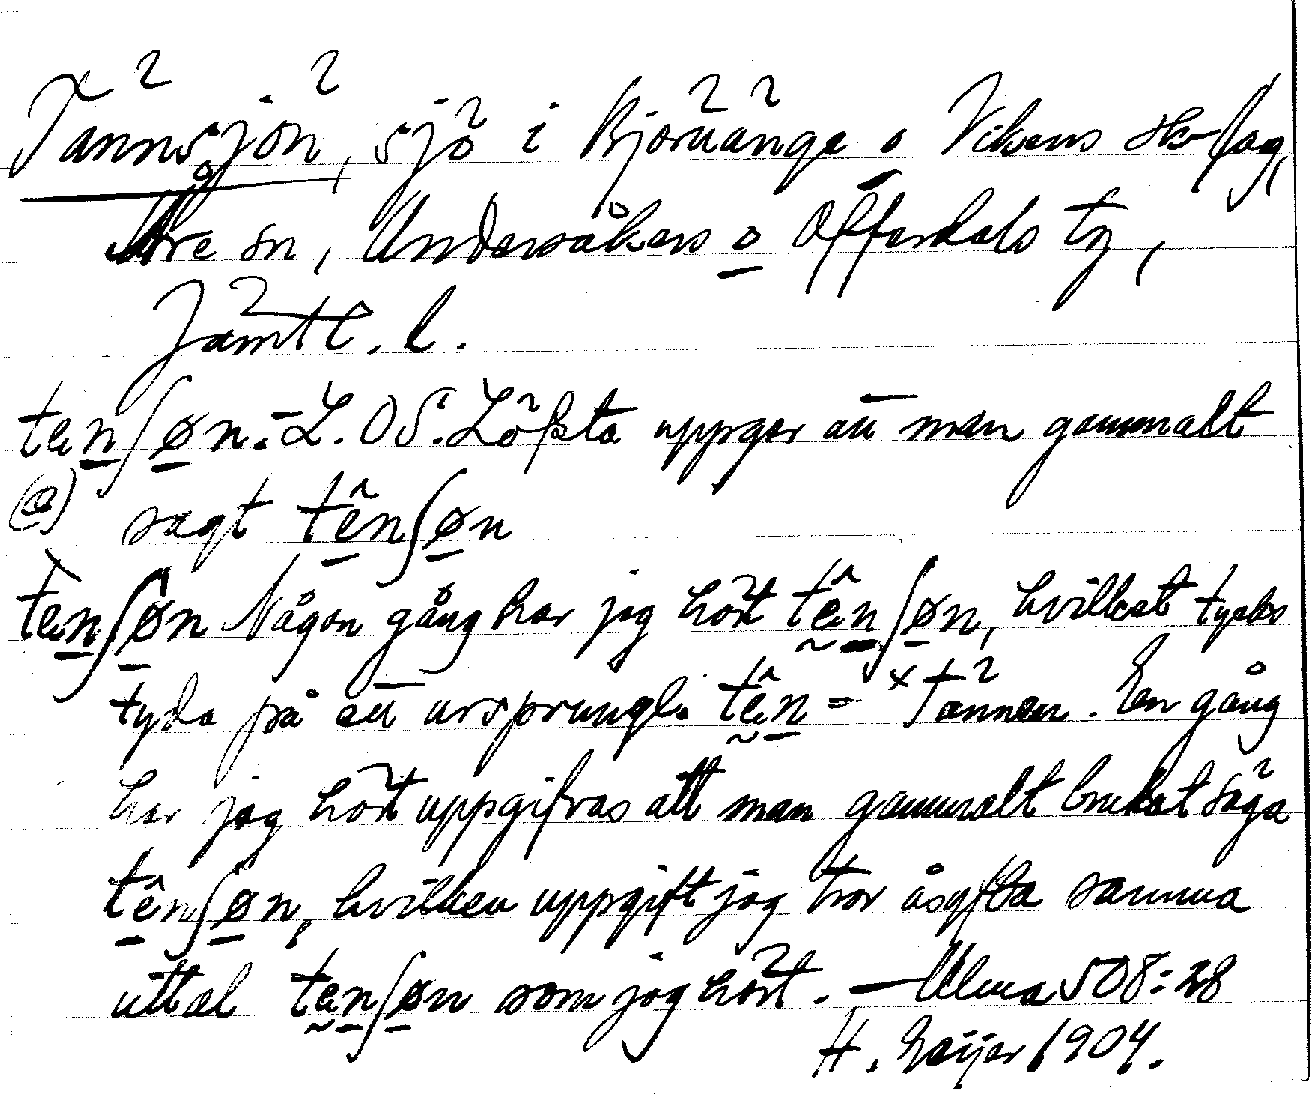 Tännsjön, sjö i Björnänge o Vikens sko-lag,
Åre sn, Undersåkers o Offerdals tg,
Jämtl. l.
tenʃøn. L. OS. Löfsta uppger att man gammalt
(a) sagt tênʃøn
tènʃøn Någon gång har jag hört tênʃøn, hvilket tycks
tyda på ett ursprungl. tên = ×Tännen. En gång
har jag hört uppgifvas att man gammalt brukat säga
tênʃøn, hvilken uppgift jag tror åsyfta samma
uttal tenʃøn som jag hört. — Ulma 508:28
H. Geijer 1904.